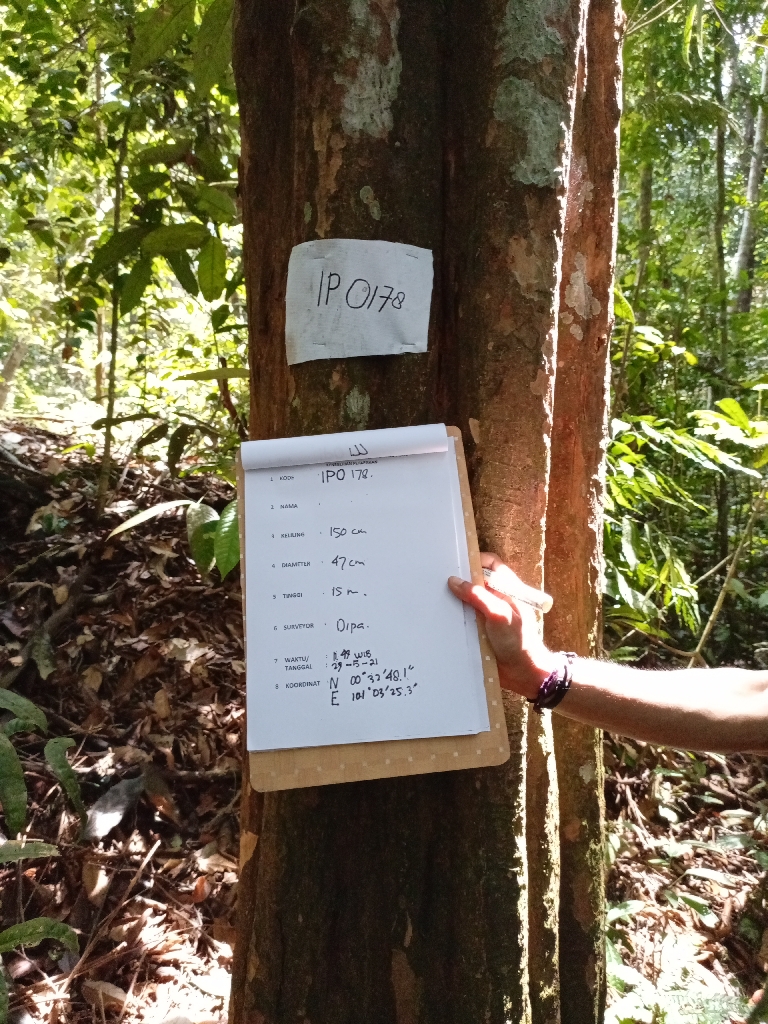 IPO178
1 KODE : IPO 178.
2 NAMA :
3 KELILING : 150 cm
4 DIAMETER : 47 cm
5 TINGGI : 15 m.
6 SURVEYOR : Dipa.
7 WAKTU/ : 49 WIB
TANGGAL : 29-5-21
8 KOORDINAT : N 00°37'48.1"
E 101°03'25.3"